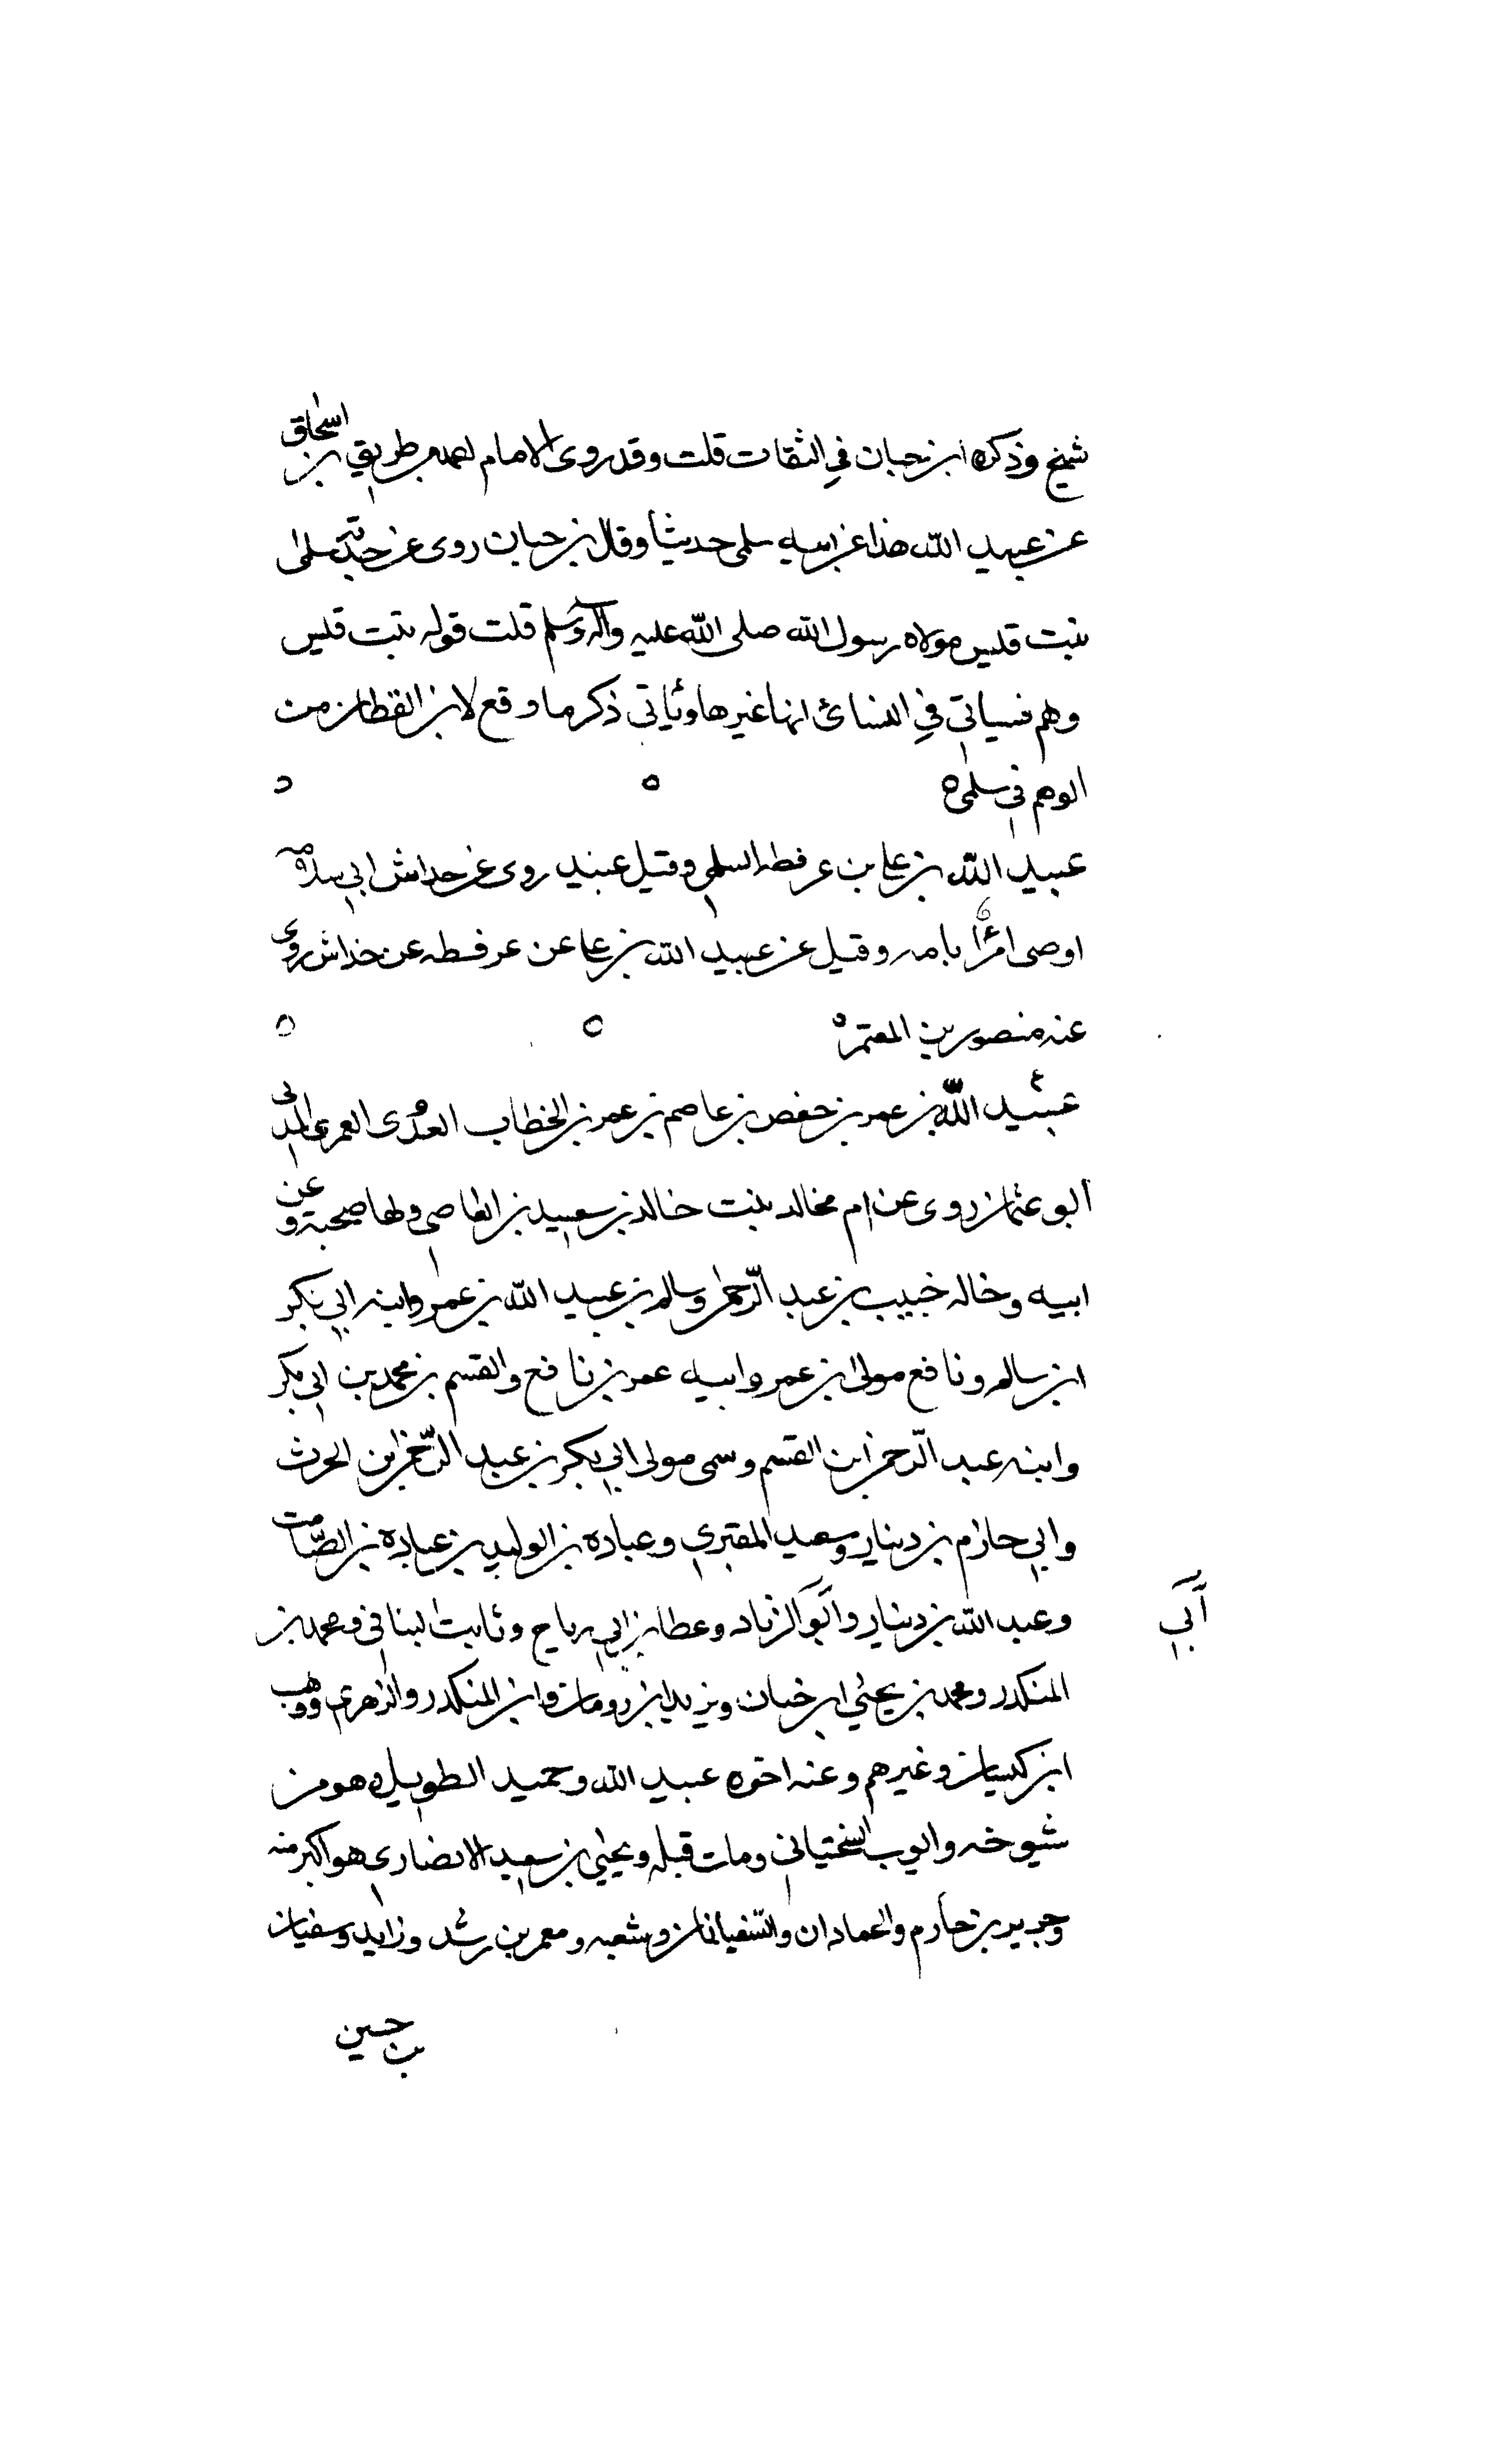 شيخ وذكره ابن حبان في الثقات قلت وقد روى الامام احمد من طريق ابن اسحاق
عن عبيد الله هذا عن ابيه سلمى حديثا وقال ابن حبان روى عن جدته سلمى
بنت قيس مولاه رسول الله صلى الله عليه وآله وسلم قلت قوله بنت قيس
وهم فسياتي في النسائ انها غيرها وياتي ذكر ما وقع لابن القطان من
الوهم في سلمى ه
عبيد الله بن علي بن عرفطه السلمي وقيل عبيد روى عن خداش ابي سلامه
اوصى امرًا بامه وقيل عن عبيد الله بن علي عن عرفطه عن خداش روى
عنه منصور بن المعتمر ه
ع
عبيد الله بن عمر بن حفص بن عاصم بن عمر بن الخطاب العدوى العمري المدني
ابو عثمان روى عن ام خالد بنت خالد بن سعيد بن العاصي ولها صحبة وعن
ابيه وخاله خبيب بن عبد الرحمن وسالم بن عبيد الله بن عمر وابنه ابي بكر
ابن سالم ونافع مولى ابن عمر وابيه عمر بن نافع والقسم بن محمد بن ابي بكر
وابنه عبد الرحمن ابن القسم وسمى مولى ابي بكر بن عبد الرحمن ابن الحرث
وابي حازم بن دينار وسعيد المقبري وعباده بن الوليد بن عباده بن الصّامت
وعبد الله بن دينار وابو الزناد وعطا بن ابي رباح وثابت البناني ومحمد بن
أبي
المنكدر ومحمد بن يحيى ابن حبان ويزيد ابن رومان وابن المنكدر والزهري ووهب
ابن كيسان وغيرهم وعنه اخوه عبيد الله وحميد الطويل وهو من
شيوخه وايوب السختياني ومات قبله ويحيى بن سعيد الانصاري هو اكبر منه
وجرير بن حازم والحمادان والسّفيانان وشعبه ومعمر بن رشد وزايد وسفيان
بن حسين